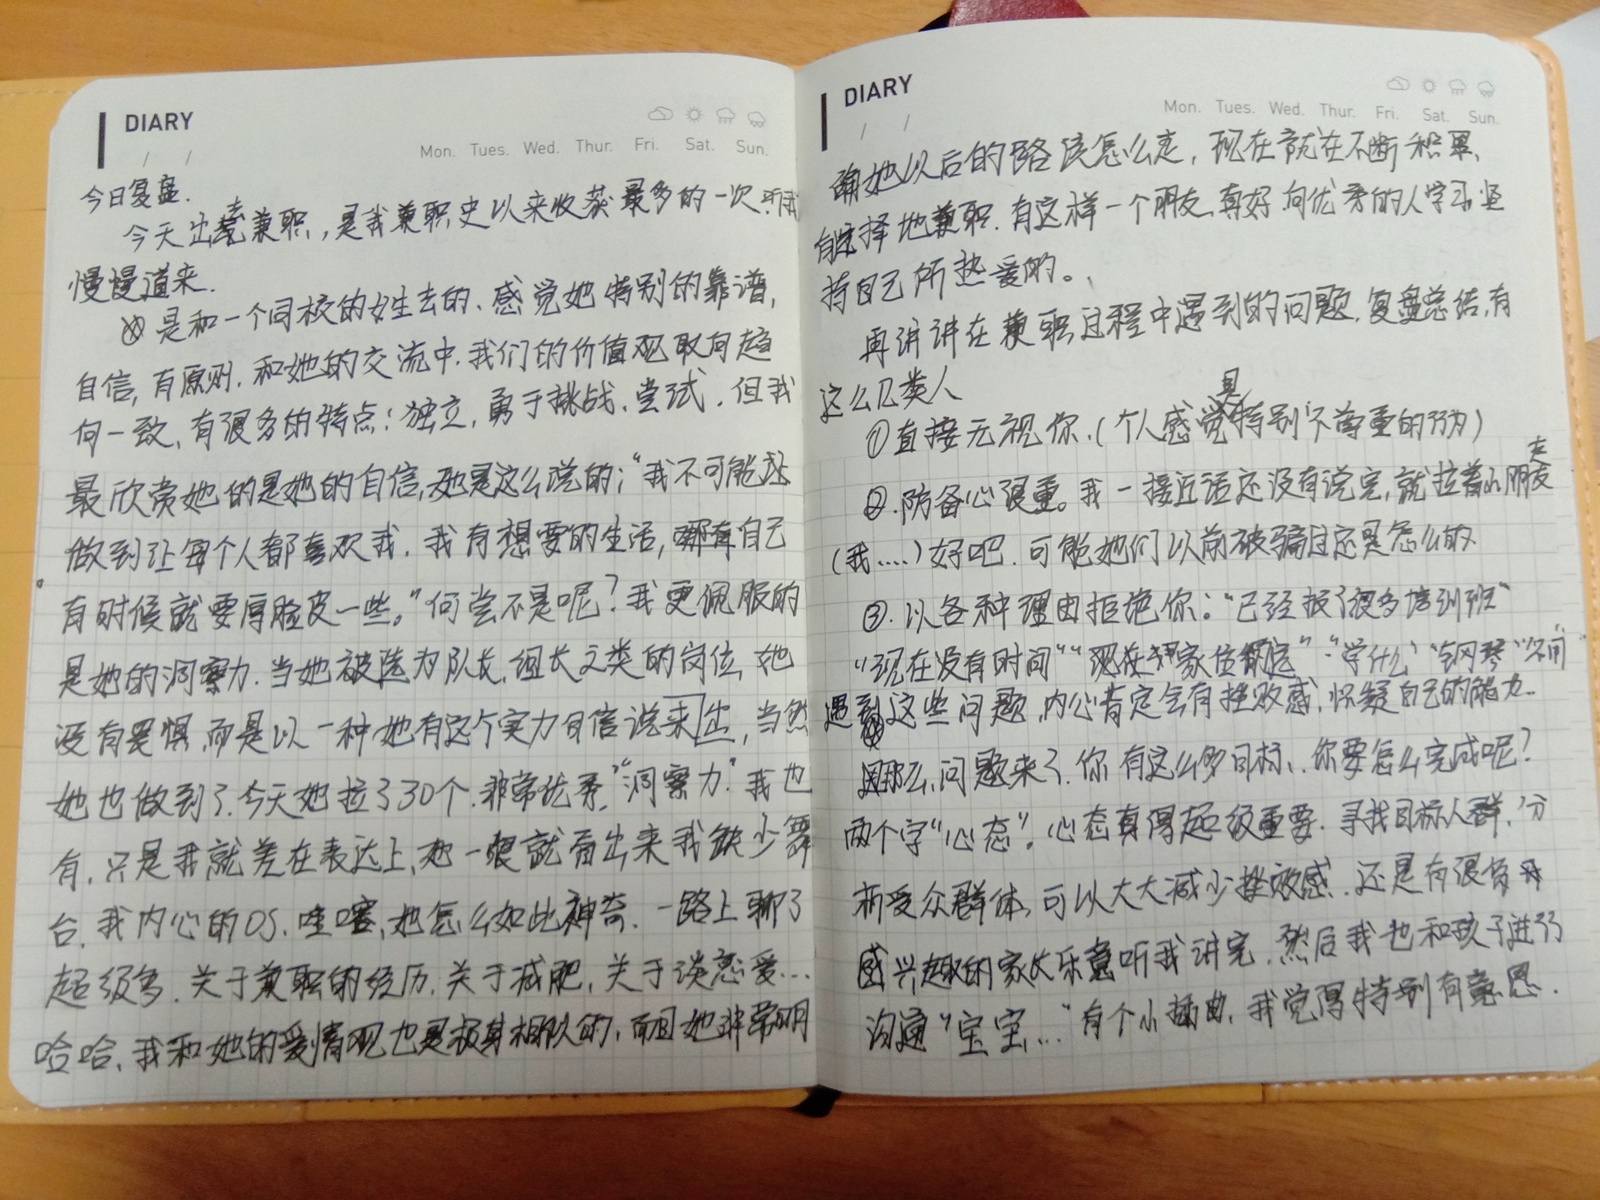 DIARY
/ /
Mon. Tues. Wed. Thur. Fri. Sat. Sun.
今日复盘.
今天出去兼职,是我兼职史以来收获最多的一次.听我
慢慢道来.
是和一个同校的女生去的、感觉她特别的靠谱,
自信,有原则.和她的交流中.我们的价值观取向趋
向一致、有很多的特点:独立,勇于挑战、尝试.但我
最欣赏她的是她的自信,她是这么说的:“我不可能
做到让每个人都喜欢我.我有想要的生活,自己
有时候就要厚脸皮一些。”何尝不是呢?我更佩服的
是她的洞察力.当她被选为队长,组长之类的岗位,她
没有畏惧,而是以一种她有这个实力自信说出来,当然
她也做到了.今天她拉了30个.非常优秀,“洞察力”我也
有.只是我就差在表达上,她一眼就看出来我缺少舞
台.我内心的OS.哇噻,她怎么如此神奇.一路上聊了
超级多.关于兼职的经历.关于减肥,关于谈恋爱...
哈哈,我和她的爱情观也是极其相似的,而且她非常明
DIARY
/ /
Mon. Tues. Wed. Thur. Fri. Sat. Sun.
确她以后的路该怎么走,现在就在不断积累、
有选择地兼职.有这样一个朋友,真好 向优秀的人学习.坚
持自己所热爱的。
再讲讲在兼职过程中遇到的问题.复盘总结,有
这么几类人
①直接无视你.(个人感觉是特别不尊重的行为)
②.防备心很重。我一接近话还没有说完,就拉着小朋友走
(我....)好吧.可能她们以前被骗过还是怎么的.
③.以各种理由拒绝你:“已经报了很多培训班”
“现在没有时间”“学什么”“钢琴”
遇到这些问题,内心肯定会有挫败感,怀疑自己的能力..
那么,问题来了.你有这么多目标、你要怎么完成呢?
两个字“心态”。心态真得超级重要.寻找目标人群,分
析受众群体,可以大大减少挫败感.还是有很多
感兴趣的家长乐意听我讲完.然后我也和孩子进行
沟通“宝宝...”有个小插曲,我觉得特别有意思.